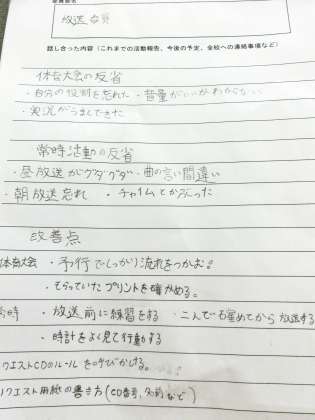 放送委員
話し合った内容（これまでの活動報告、今後の予定、全校への連絡事項など）
体育大会の反省
・自分の役割を忘れた ・音量がいいかわからない
・実況がうまくできた
常時活動の反省
・昼放送がグダグダ ・曲の言い間違い
・朝放送忘れ ・チャイムとかぶった
改善点
体育大会 ・予行でしっかり流れをつかむ!
・もらっていたプリントを確かめる。
常時 ・放送前に練習をする ・二人で確認してから放送する
・時計をよく見て行動する
クエストCDのルールを呼びかける。
リクエスト用紙の書き方(CD番号、名前など)